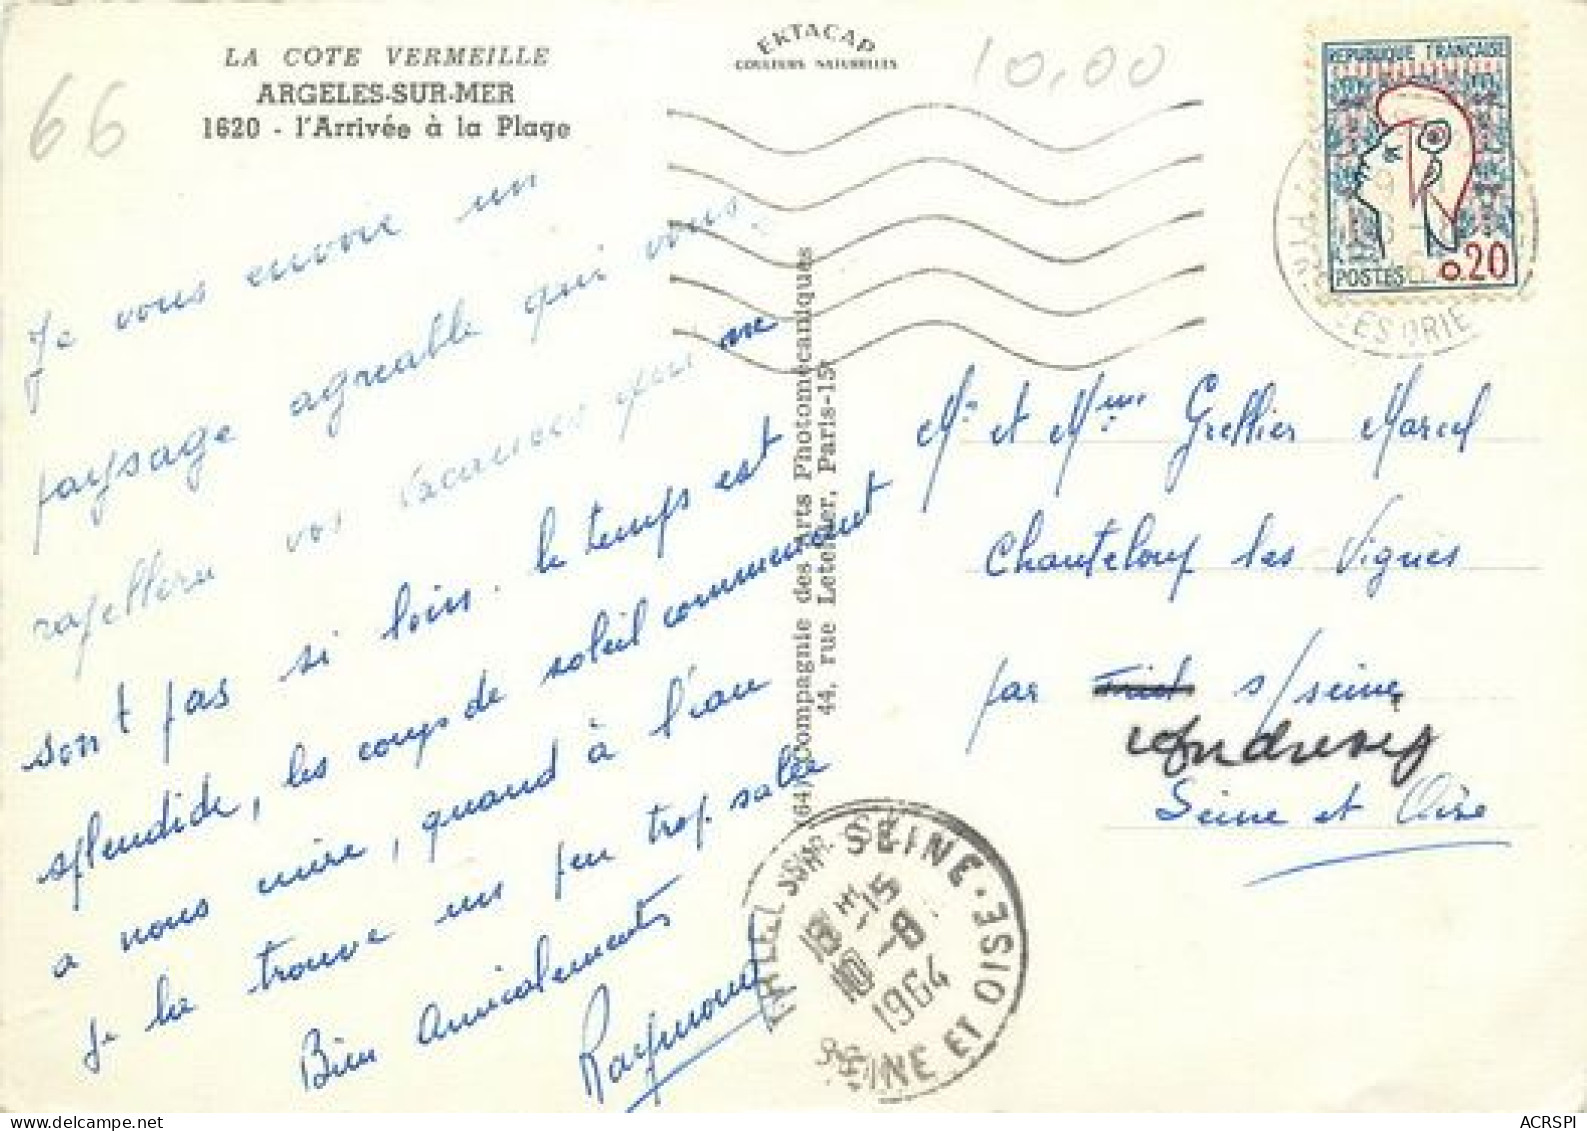 LA COTE VERMEILLE
ARGELES-SUR-MER
1620 - l'Arrivée à la Plage
66
EKTACAP
COULEURS NATURELLES
10,00
REPUBLIQUE FRANÇAISE
POSTES
0.20
ES ORIE
Je vous envoie un
paysage agréable qui vous
rapellera vos vacances qui ne
sont pas si loin. le temps est
splendide, les coups de soleil commencent
a nous cuire, quand à l'eau
je la trouve un peu trop salée
Bien Amicalements
Raymond
(64) Compagnie des Arts Photomécaniques
44, rue Letellier, Paris-15e
Mr et Mme Grellier Marcel
Chanteloup les Vignes
par s/seine
Andresy
Seine et Oise
SEINE
18H15
10-8
1964
SEINE ET OISE
ACRSPI